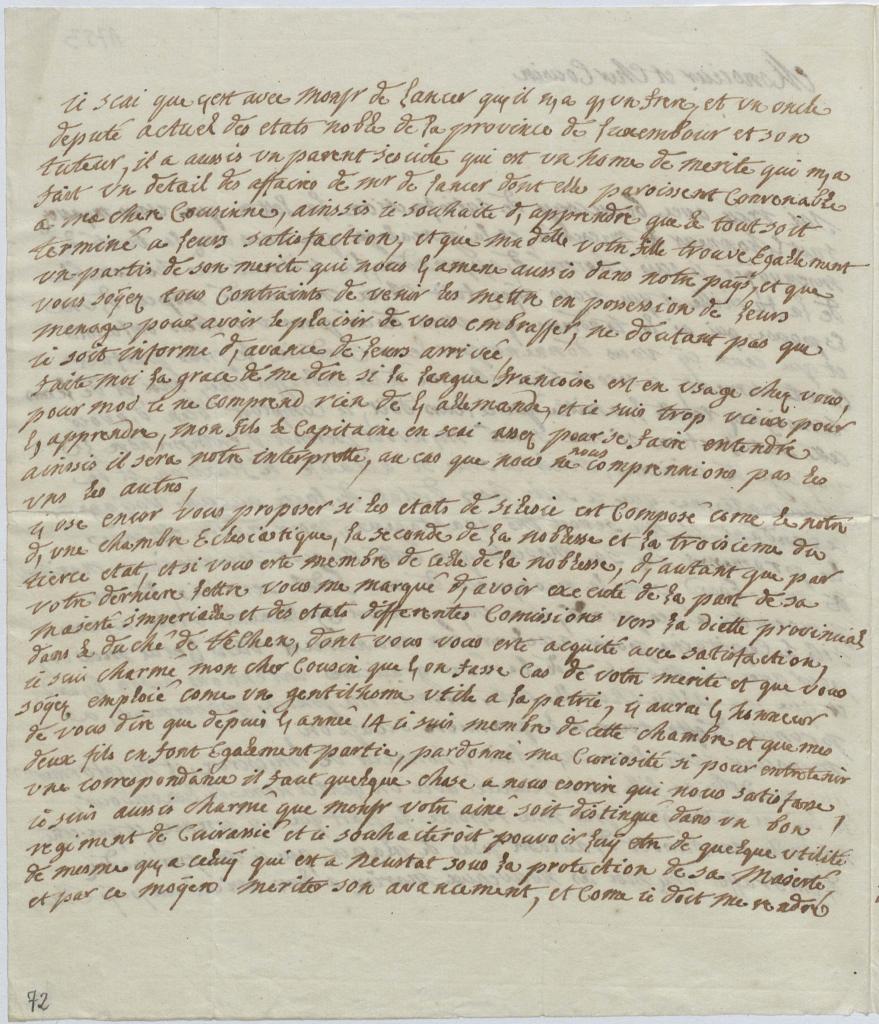 ie scai que c,est avec monsr de lancer qu,il n,a qu,un frere, et un oncle
deputé actuel des etats noble de la province de luxembour et son
tuteur, il a aussis un parent iesuite qui est un home de merite qui m,a
fait un detail des affaires de mr de lancer dont elle paroissent Convenable
a ma chere Cousinne, ainssis ie souhaite d,apprendre que le tout soit
terminé a leurs satisfaction, et que madelle votre fille trouve Egallement
un partis de son merite qui nous l,amene aussis dans notre pays, et que
vous soÿez tous Contraints de venir les mettre en possession de leurs
menage pour avoir le plaisir de vous embrasser, ne doutant pas que
ie soit informé d,avance de leurs arrivée,
faite moi la grace de me dire si la langue francoise est en usage chez vous,
pour moi ie ne comprend rien de l,allemande, et ie suis trop vieux pour
l,apprendre, mon fils le Capitaine en scai assez pour se faire entendre
ainssis il sera notre interprette, au cas que nous ne nous comprennions pas les
uns les autres,
i,ose encor vous proposer si les etats de silesie est Composé come le notre
d,une chambre Eclesiastique, la seconde de la noblesse et la troisieme du
tierce etat, et si vous este membre de celle de la noblesse, d,autant que par
votre derniere lettre vous me marqué d,avoir execute de la part de sa
maiesté imperialle et des etats differentes Comissions vers la diette provinciale
dans le duché de, dont vous vous este acquité avec satisfaction,
ie suis charmé mon cher Cousin que l,on fasse Cas de votre merite et que vous
soÿez emploié come un gentilhome utile a la patrie, i,aurai l,honneur
de vous dire que depuis l,année 14 ie suis membre de cette chambre et que mes
deux fils en font Egalement partie, pardonné ma Curiosité si pour entretenir
une correspondance il faut quelque chose a nous escrire qui nous satisfasse,
ie suis aussis charmé que monsr votre ainé soit distingué dans un bon
regiment de Cuirassié et ie souhaiterois pouvoir luy etre de quelque utilité
de mesme qu,a celuy qui est a Neustat sous la protection de sa Maiesté
et par ce moÿen meriter son avancement, et Come ie doit me rendre
72